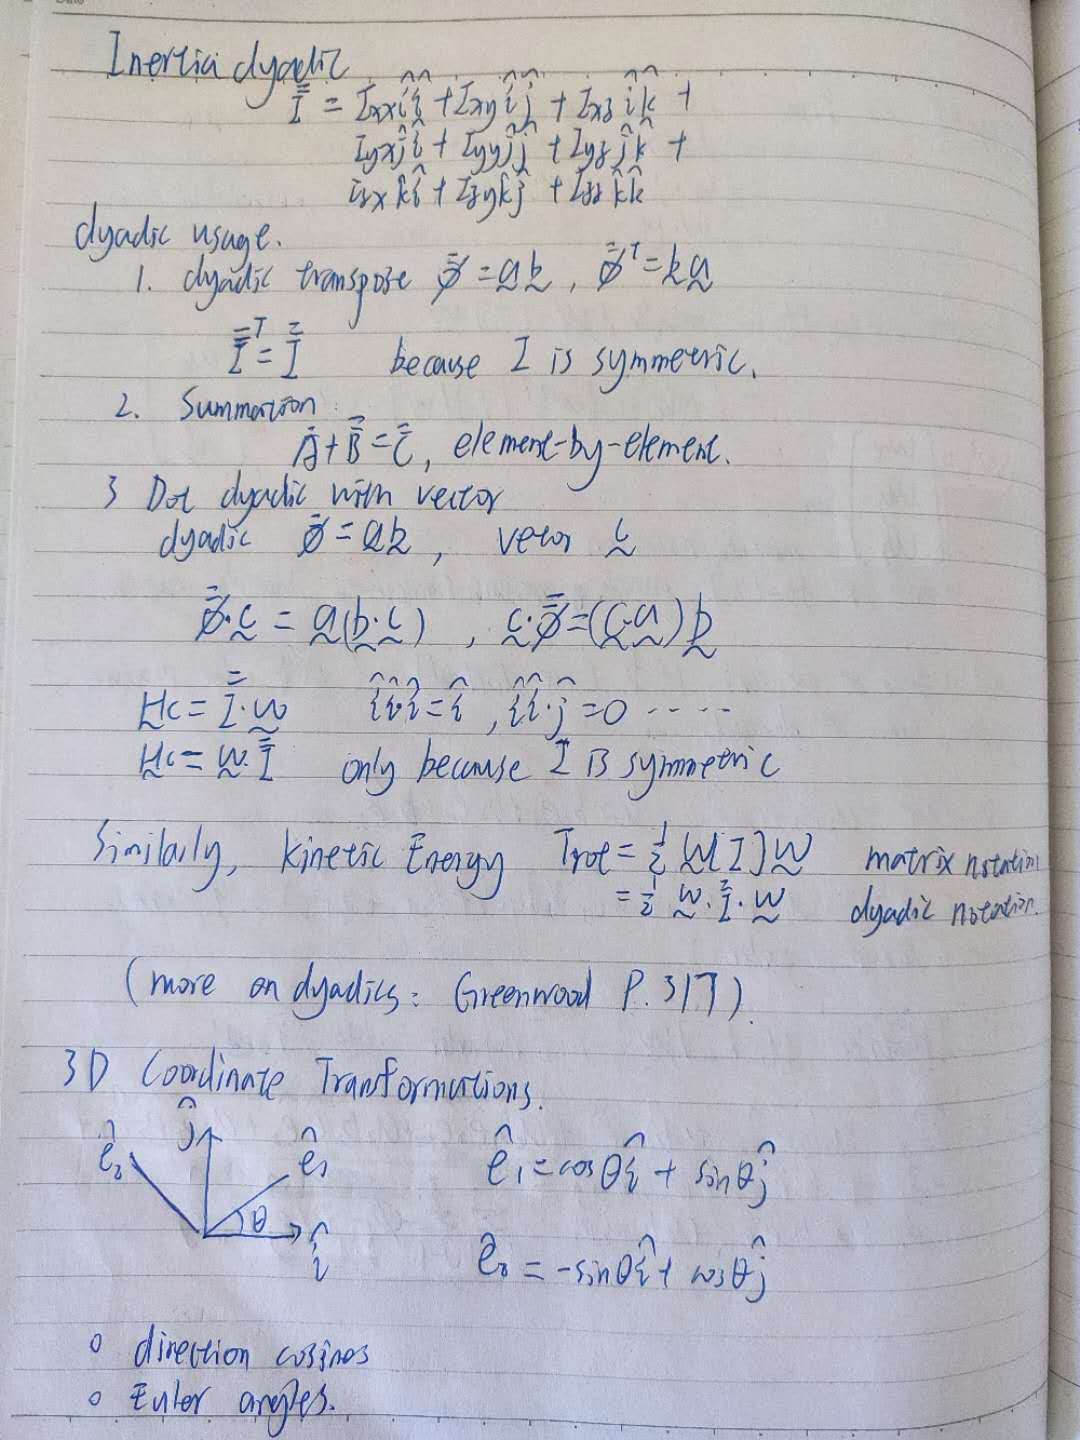 Inertia dyadic
I̿ = Ixx îî + Ixy îĵ + Ixz îk̂ +
Iyx ĵî + Iyy ĵĵ + Iyz ĵk̂ +
Izx k̂î + Izy k̂ĵ + Izz k̂k̂
dyadic usage.
1. dyadic transpose ϕ̿ = a̰ b̰ , ϕ̿ᵀ = b̰ a̰
I̿ᵀ = I̿ because I is symmetric.
2. Summation
A̿ + B̿ = C̿, element-by-element.
3 Dot dyadic with vector
dyadic ϕ̿ = a̰ b̰ , vector c̰
ϕ̿·c̰ = a̰(b̰·c̰) , c̰·ϕ̿ = (c̰·a̰) b̰
H̰c = I̿·w̰ îî·î = î , îî·ĵ = 0 -----
H̰c = w̰·I̿ only because I is symmetric
Similarly, kinetic Energy Trot = ½ w̰[I]w̰ matrix notation
= ½ w̰·I̿·w̰ dyadic notation.
(more on dyadics: Greenwood P.317)
3D Coordinate Transformations.
ĵ
ê₂ ê₁ ê₁ = cosθ î + sinθ ĵ
θ
î
ê₂ = -sinθ î + cosθ ĵ
o direction cosines
o Euler angles.